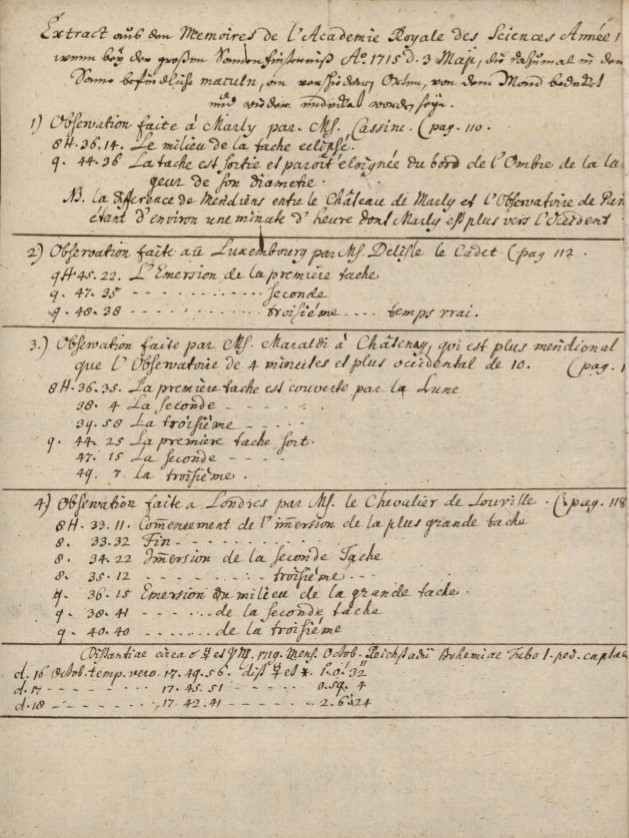 Extract auß den Memoires de l'Academie Royale des Sciences Année 1
wenn bey der großen Sonnenfinsterniß Ao. 1715 d. 3 Maji, die dazumal in der
Sonne befindliche maculn, an verschiedenen Orten, von dem Mond bedeckt
und wieder entdeckt worden seyn.
1) Observation faite à Marly par Mſ. Cassini. (pag. 110.
8H. 36. 14. Le milieu de la tache eclipsé.
9. 44. 36 La tache est sortie et paroit eloignée du bord de l'Ombre de la lar
geur de son diametre.
NB. la difference de Meridiens entre le Château de Marly et l'Observatoire de Pari
étant d'environ une minute d'heure dont Marly est plus vers l'Occident
2) Observation faite au Luxembourg par Mſ Delisle le Cadet (pag 112.
9H 45. 22. L'Emersion de la premiere tache
9. 47. 35 - - - - - - - - - - - seconde
9. 48. 38 - - - - - - - - - - - troisiéme .... temps vrai.
3.) Observation faite par Mſ. Maraldi à Châtenay, qui est plus meridional
que l'Observatoire de 4 minutes et plus occidental de 10. (pag. 1
8H. 36. 35. La premiere tache est couverte par la Lune
38. 4 La seconde - - - - -
39. 58 La troisiéme - - - - -
9. 44. 25 La premiere tache sort.
47. 15 La seconde - - - -
49. 7. la troisiéme.
4) Observation faite a Londres par Mſ. le Chevalier de Louville. (pag. 118
8H. 33. 11. Com̄encement de l'im̄ersion de la plus grande tache
8. 33. 32 Fin - - - - - - - - - -
8. 34. 22 Im̄ersion de la seconde Tache
8. 35. 12 - - - - - - - - - troisiéme - - -
9. 36. 15 Emersion du milieu de la grande tache.
9. 38. 41 - - - - - - de la seconde tâche
9. 40. 40 - - - - - - - de la troisiéme
Distantiae circa ☌ ☿ et ♍ 1719. Mens. Octob. Reichstadii Bohemiae Tubo 1. ped. captae
d. 16 Octob. temp. vero. 17. 49. 56. dist ☿ et *. 1. 0. 32
d. 17 - - - - - - - 17. 45. 51 - - - - - - 0. 59. 4
d. 18 - - - - - - - 17. 42. 41 - - - - - - 2. 6. 24